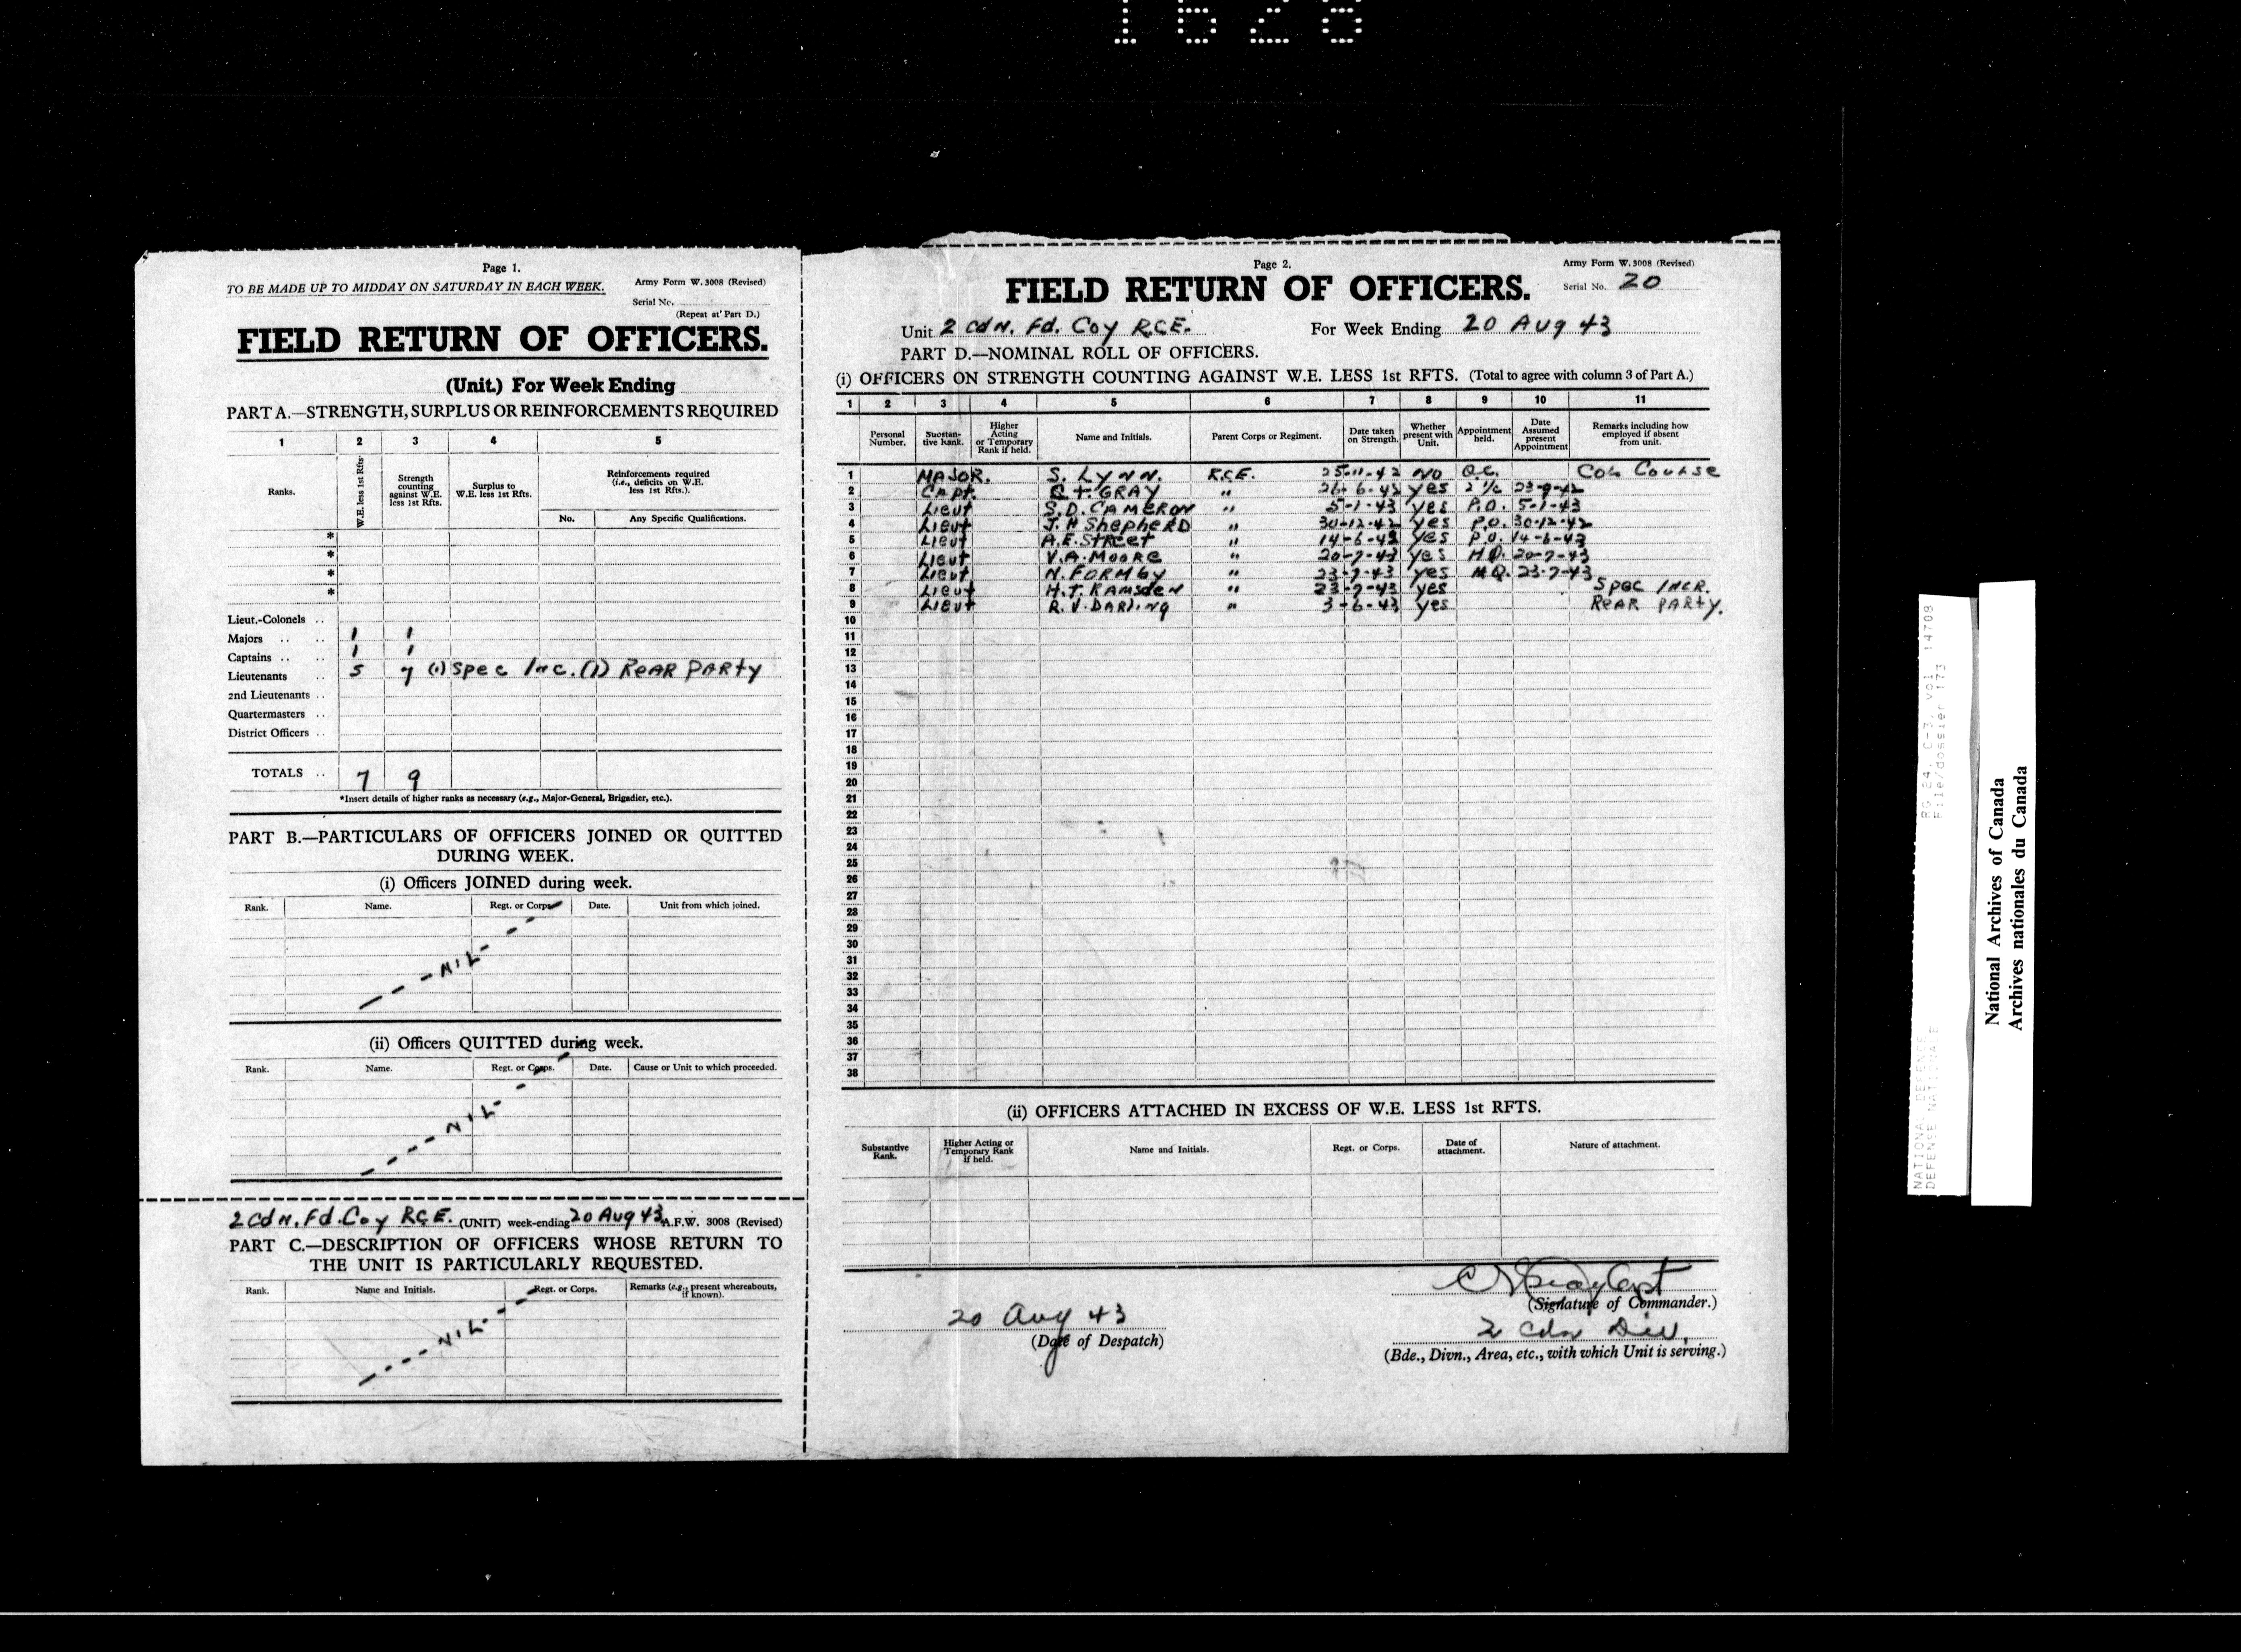 1628
Page 1.
TO BE MADE UP TO MIDDAY ON SATURDAY IN EACH WEEK.
Army Form W. 3008 (Revised)
Serial No.
(Repeat at Part D.)
FIELD RETURN OF OFFICERS.
(Unit.) For Week Ending
PART A.—STRENGTH, SURPLUS OR REINFORCEMENTS REQUIRED
1 2 3 4 5
Ranks.
W.E. less 1st Rfts.
Strength counting against W.E. less 1st Rfts.
Surplus to W.E. less 1st Rfts.
Reinforcements required (i.e., deficits on W.E. less 1st Rfts.).
No. Any Specific Qualifications.
*
*
*
*
Lieut.-Colonels ..
Majors .. .. 1 1
Captains .. .. 1 1
Lieutenants .. 5 7 (1) Spec Inc. (1) REAR PARTY
2nd Lieutenants ..
Quartermasters ..
District Officers ..
TOTALS .. 7 9
*Insert details of higher ranks as necessary (e.g., Major-General, Brigadier, etc.).
PART B.—PARTICULARS OF OFFICERS JOINED OR QUITTED
DURING WEEK.
(i) Officers JOINED during week.
Rank. Name. Regt. or Corps. Date. Unit from which joined.
- NIL -
(ii) Officers QUITTED during week.
Rank. Name. Regt. or Corps. Date. Cause or Unit to which proceeded.
- NIL -
2 Cdn. Fd. Coy R.C.E. (UNIT) week-ending 20 Aug 43 A.F.W. 3008 (Revised)
PART C.—DESCRIPTION OF OFFICERS WHOSE RETURN TO
THE UNIT IS PARTICULARLY REQUESTED.
Rank. Name and Initials. Regt. or Corps. Remarks (e.g., present whereabouts, if known).
- NIL -
Page 2.
Army Form W. 3008 (Revised)
FIELD RETURN OF OFFICERS.
Serial No. 20
Unit 2 Cdn. Fd. Coy R.C.E. For Week Ending 20 Aug 43
PART D.—NOMINAL ROLL OF OFFICERS.
(i) OFFICERS ON STRENGTH COUNTING AGAINST W.E. LESS 1st RFTS. (Total to agree with column 3 of Part A.)
1 2 3 4 5 6 7 8 9 10 11
Personal Number.
Substantive Rank.
Higher Acting or Temporary Rank if held.
Name and Initials.
Parent Corps or Regiment.
Date taken on Strength.
Whether present with Unit.
Appointment held.
Date Assumed present Appointment
Remarks including how employed if absent from unit.
1 MAJOR. S. LYNN. R.C.E. 25-11-42 NO O.C. Course
2 Capt. GRAY " yes 2 i/c
3 Lieut S.D. CAMERON " 5-1-43 yes P.O. 5-1-43
4 Lieut J.H Shepherd " 30-12-42 yes P.O. 30-12-42
5 Lieut A.E. Street " yes P.O. 14-6-43
6 Lieut V.A. Moore " 20-7-43 yes H.Q. 20-7-43
7 Lieut N. FORMBY " 23-7-43 yes H.Q. 23-7-43
8 Lieut H.T. RAMSDEN " 23-7-43 yes Spec INCR.
9 Lieut R.V. DARLING " 3-6-43 yes REAR PARTY.
10
11
12
13
14
15
16
17
18
19
20
21
22
23
24
25
26
27
28
29
30
31
32
33
34
35
36
37
38
(ii) OFFICERS ATTACHED IN EXCESS OF W.E. LESS 1st RFTS.
Substantive Rank. Higher Acting or Temporary Rank if held. Name and Initials. Regt. or Corps. Date of attachment. Nature of attachment.
Gray Capt
(Signature of Commander.)
20 Aug 43
(Date of Despatch)
2 Cdn Div.
(Bde., Divn., Area, etc., with which Unit is serving.)
RG 24, C-3, vol 14708
File/dossier 173
NATIONAL DEFENCE
DEFENSE NATIONALE
National Archives of Canada
Archives nationales du Canada